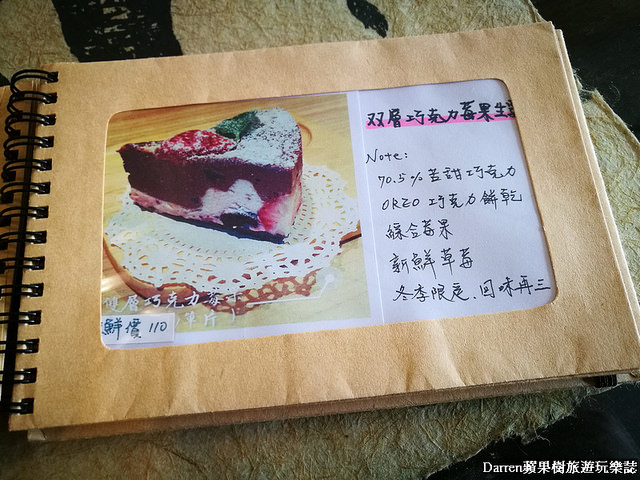 双層巧克力莓果生
Note:
70.5% 苦甜巧克力
OREO 巧克力餅乾
綜合莓果
新鮮草莓
冬季限定.回味再三
雙層巧克力莓
單片)
鮮價 110
Darren蘋果樹旅遊玩樂誌